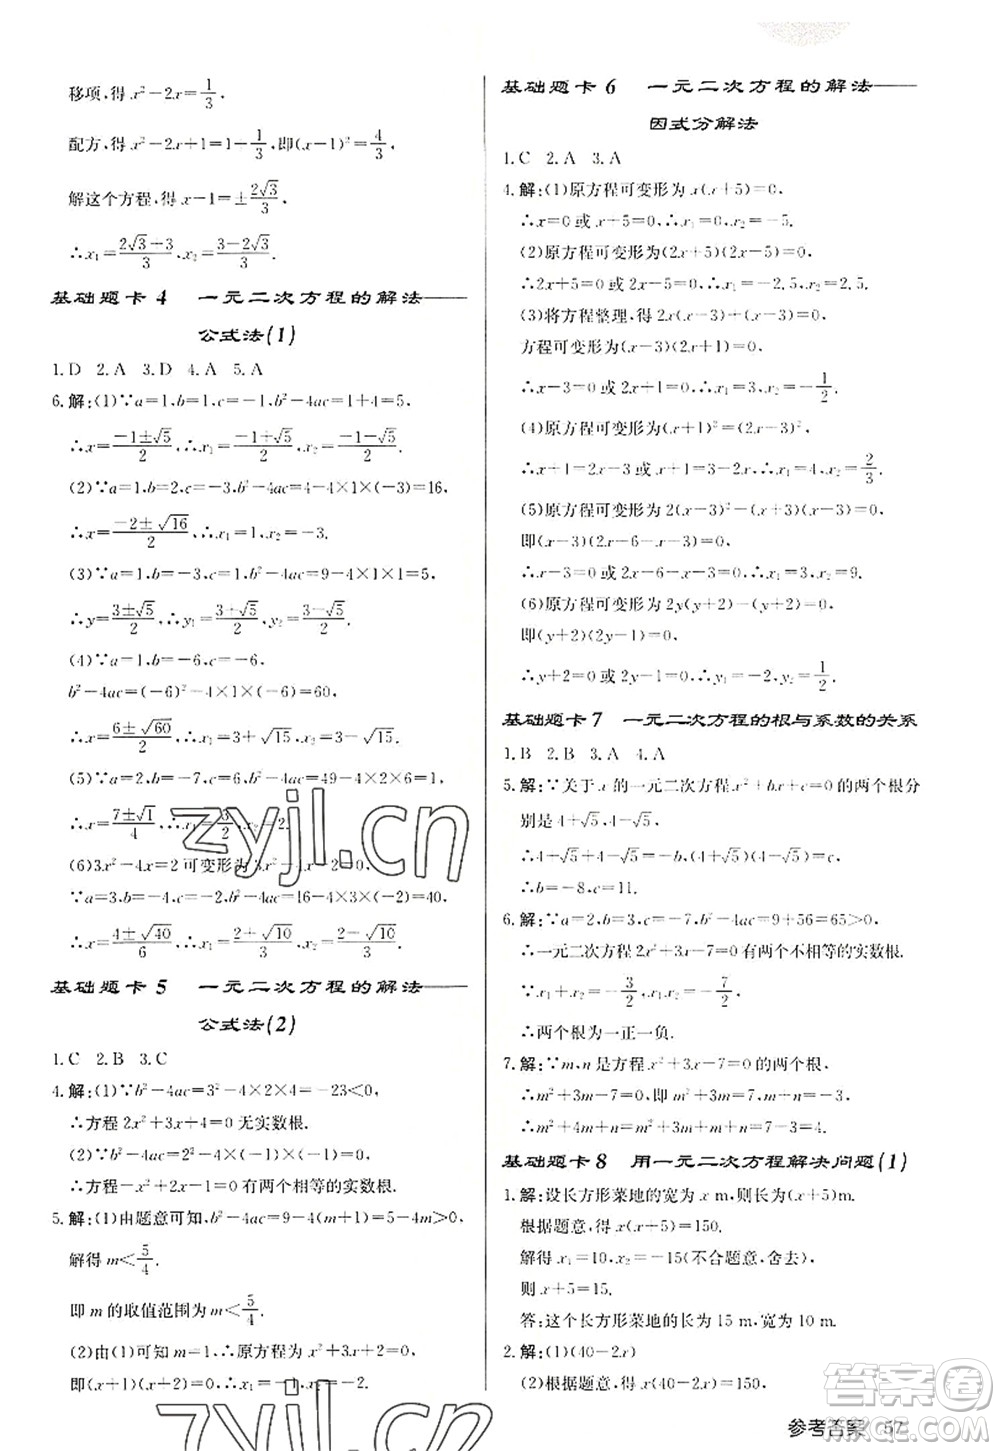 移项,得 x²-2x=1/3,
配方,得 x²-2x+1=1+1/3,即(x-1)²=4/3,
解这个方程,得 x-1=±2√3/3,
∴x₁=(2√3+3)/3,x₂=(3-2√3)/3.
基础题卡 4 一元二次方程的解法——
公式法(1)
1.D 2.A 3.D 4.A 5.A
6.解:(1)∵a=1,b=1,c=-1,b²-4ac=1+4=5,
∴x=(-1±√5)/2,∴x₁=(-1+√5)/2,x₂=(-1-√5)/2.
(2)∵a=1,b=2,c=-3,b²-4ac=4-4×1×(-3)=16,
∴x=(-2±√16)/2,∴x₁=1,x₂=-3.
(3)∵a=1,b=-3,c=1,b²-4ac=9-4×1×1=5,
∴y=(3±√5)/2,∴y₁=(3+√5)/2,y₂=(3-√5)/2.
(4)∵a=1,b=-6,c=-6,
b²-4ac=(-6)²-4×1×(-6)=60,
∴x=(6±√60)/2,∴x₁=3+√15,x₂=3-√15.
(5)∵a=2,b=-7,c=6,b²-4ac=49-4×2×6=1,
∴x=(7±√1)/4,∴x₁=3/2,x₂=2.
(6)3x²-4x=2可变形为3x²-4x-2=0,
∵a=3,b=-4,c=-2,b²-4ac=16-4×3×(-2)=40,
∴x=(4±√40)/6,∴x₁=(2+√10)/3,x₂=(2-√10)/3.
基础题卡 5 一元二次方程的解法——
公式法(2)
1.C 2.B 3.C
4.解:(1)∵b²-4ac=3²-4×2×4=-23<0,
∴方程2x²+3x+4=0无实数根.
(2)∵b²-4ac=1²-4×(-1)×(-1/4)=0,
∴方程-x²+x-1/4=0有两个相等的实数根.
5.解:(1)由题意可知,b²-4ac=9-4(m+1)=5-4m>0,
解得 m<5/4.
即 m 的取值范围为 m<5/4.
(2)由(1)可知 m=1,∴原方程为 x²+3x+2=0,
即(x+1)(x+2)=0,∴x₁=-1,x₂=-2.
基础题卡 6 一元二次方程的解法——
因式分解法
1.C 2.A 3.A
4.解:(1)原方程可变形为 x(x+5)=0,
∴x=0 或 x+5=0,∴x₁=0,x₂=-5.
(2)原方程可变形为(2x+5)(2x-5)=0,
∴2x+5=0 或 2x-5=0,∴x₁=-2.5,x₂=2.5.
(3)将方程整理,得 2x(x-3)+(x-3)=0,
方程可变形为(x-3)(2x+1)=0,
∴x-3=0 或 2x+1=0,∴x₁=3,x₂=-1/2.
(4)原方程可变形为(x+1)²=(2x-3)²,
∴x+1=2x-3 或 x+1=3-2x,∴x₁=4,x₂=2/3.
(5)原方程可变形为 2(x-3)²-(x-3)(x+3)=0,
即(x-3)(2x-6-x-3)=0,
∴x-3=0 或 x-9=0,∴x₁=3,x₂=9.
(6)原方程可变形为 2y(y+2)-(y+2)=0,
即(y+2)(2y-1)=0,
∴y+2=0 或 2y-1=0,∴y₁=-2,y₂=1/2.
基础题卡 7 一元二次方程的根与系数的关系
1.B 2.B 3.A 4.A
5.解:∵关于 x 的一元二次方程 x²+bx+c=0 的两个根分
别是 4+√5,4-√5,
∴4-√5+4+√5=-b,(4-√5)(4+√5)=c,
∴b=-8,c=11.
6.解:∵a=2,b=3,c=-7,b²-4ac=9+56=65>0,
∴一元二次方程 2x²+3x-7=0 有两个不相等的实数根.
∵x₁+x₂=-3/2<0,x₁x₂=-7/2<0,
∴两个根为一正一负.
7.解:∵m,n 是方程 x²+3x-9=0 的两个根,
∴m²+3m-9=0,∴m²+3m=9.
∴m²+4m+n=m²+3m+m+n=9-3=6.
基础题卡 8 用一元二次方程解决问题(1)
1.解:设长方形菜地的宽为 x m,则长为(x+5)m.
根据题意,得 x(x+5)=150.
解得 x₁=10,x₂=-15(不合题意,舍去),
则 x+5=15.
答:这个长方形菜地的长为 15 m,宽为 10 m.
2.解:(1)(40-2x)
(2)根据题意,得 x(40-2x)=150,
参考答案 57
zyjl.cn
zyjl.cn
答案圈
MXQE.COM